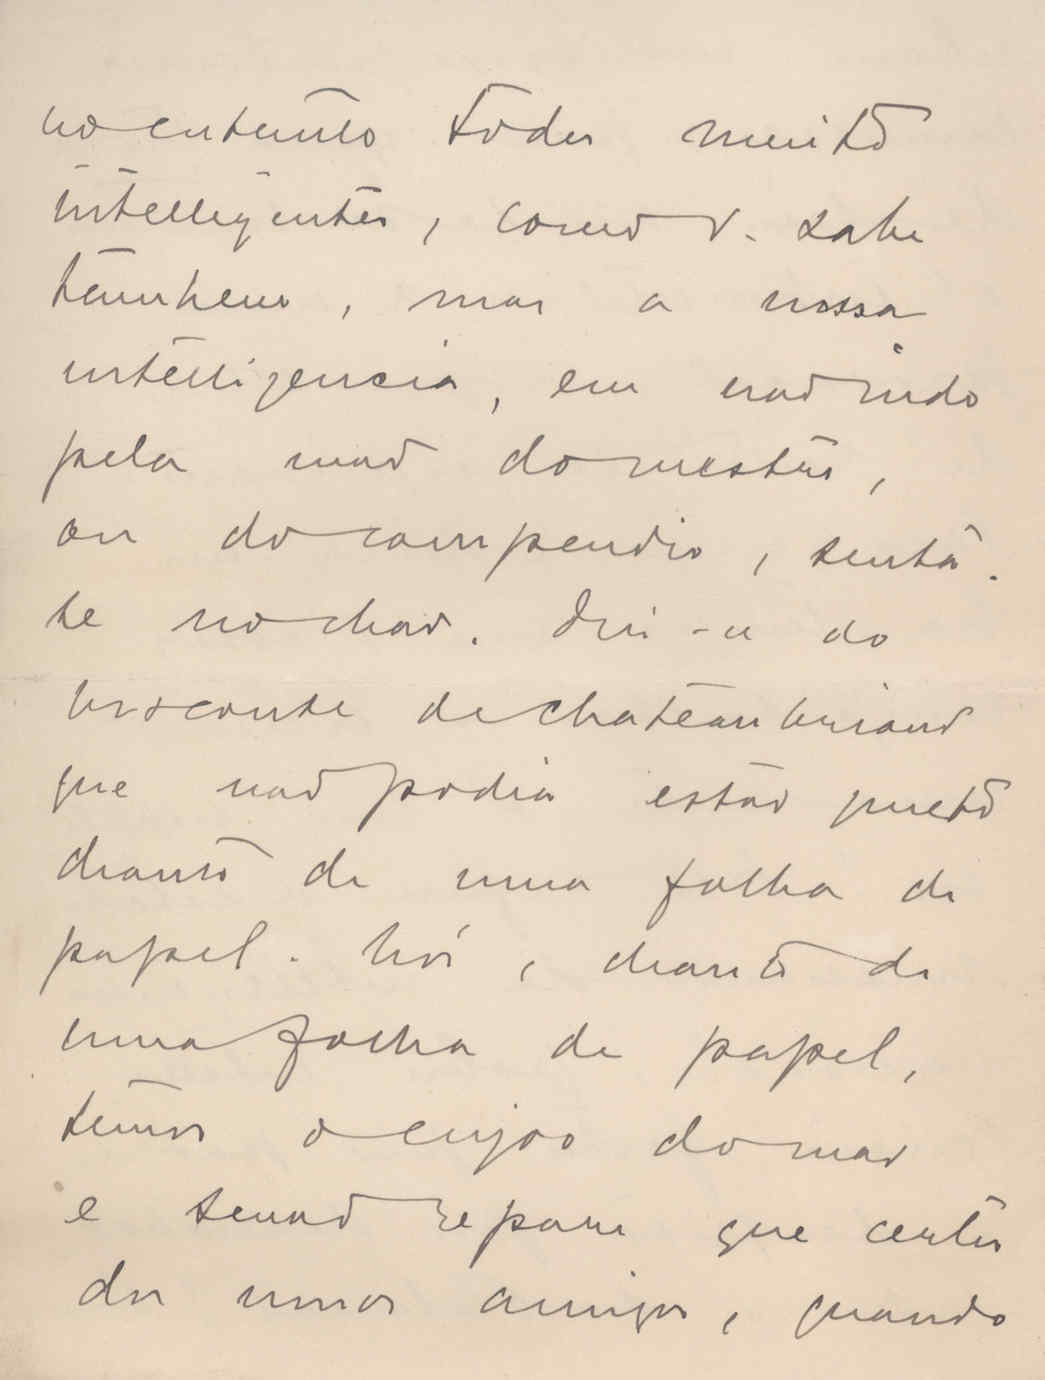 no entanto todos muito
intelligentes, como v. sabe
tambem, mas a nossa
intelligencia, em não indo
pela mão do mestre,
ou do compendio, senta-
se no chão. Diz-se do
visconde de chateaubriand
que não podia estar quieto
diante de uma folha de
papel. Nós, diante de
uma folha de papel,
temos o enjoo do mar
e senão repare que certos
dos nossos amigos, quando